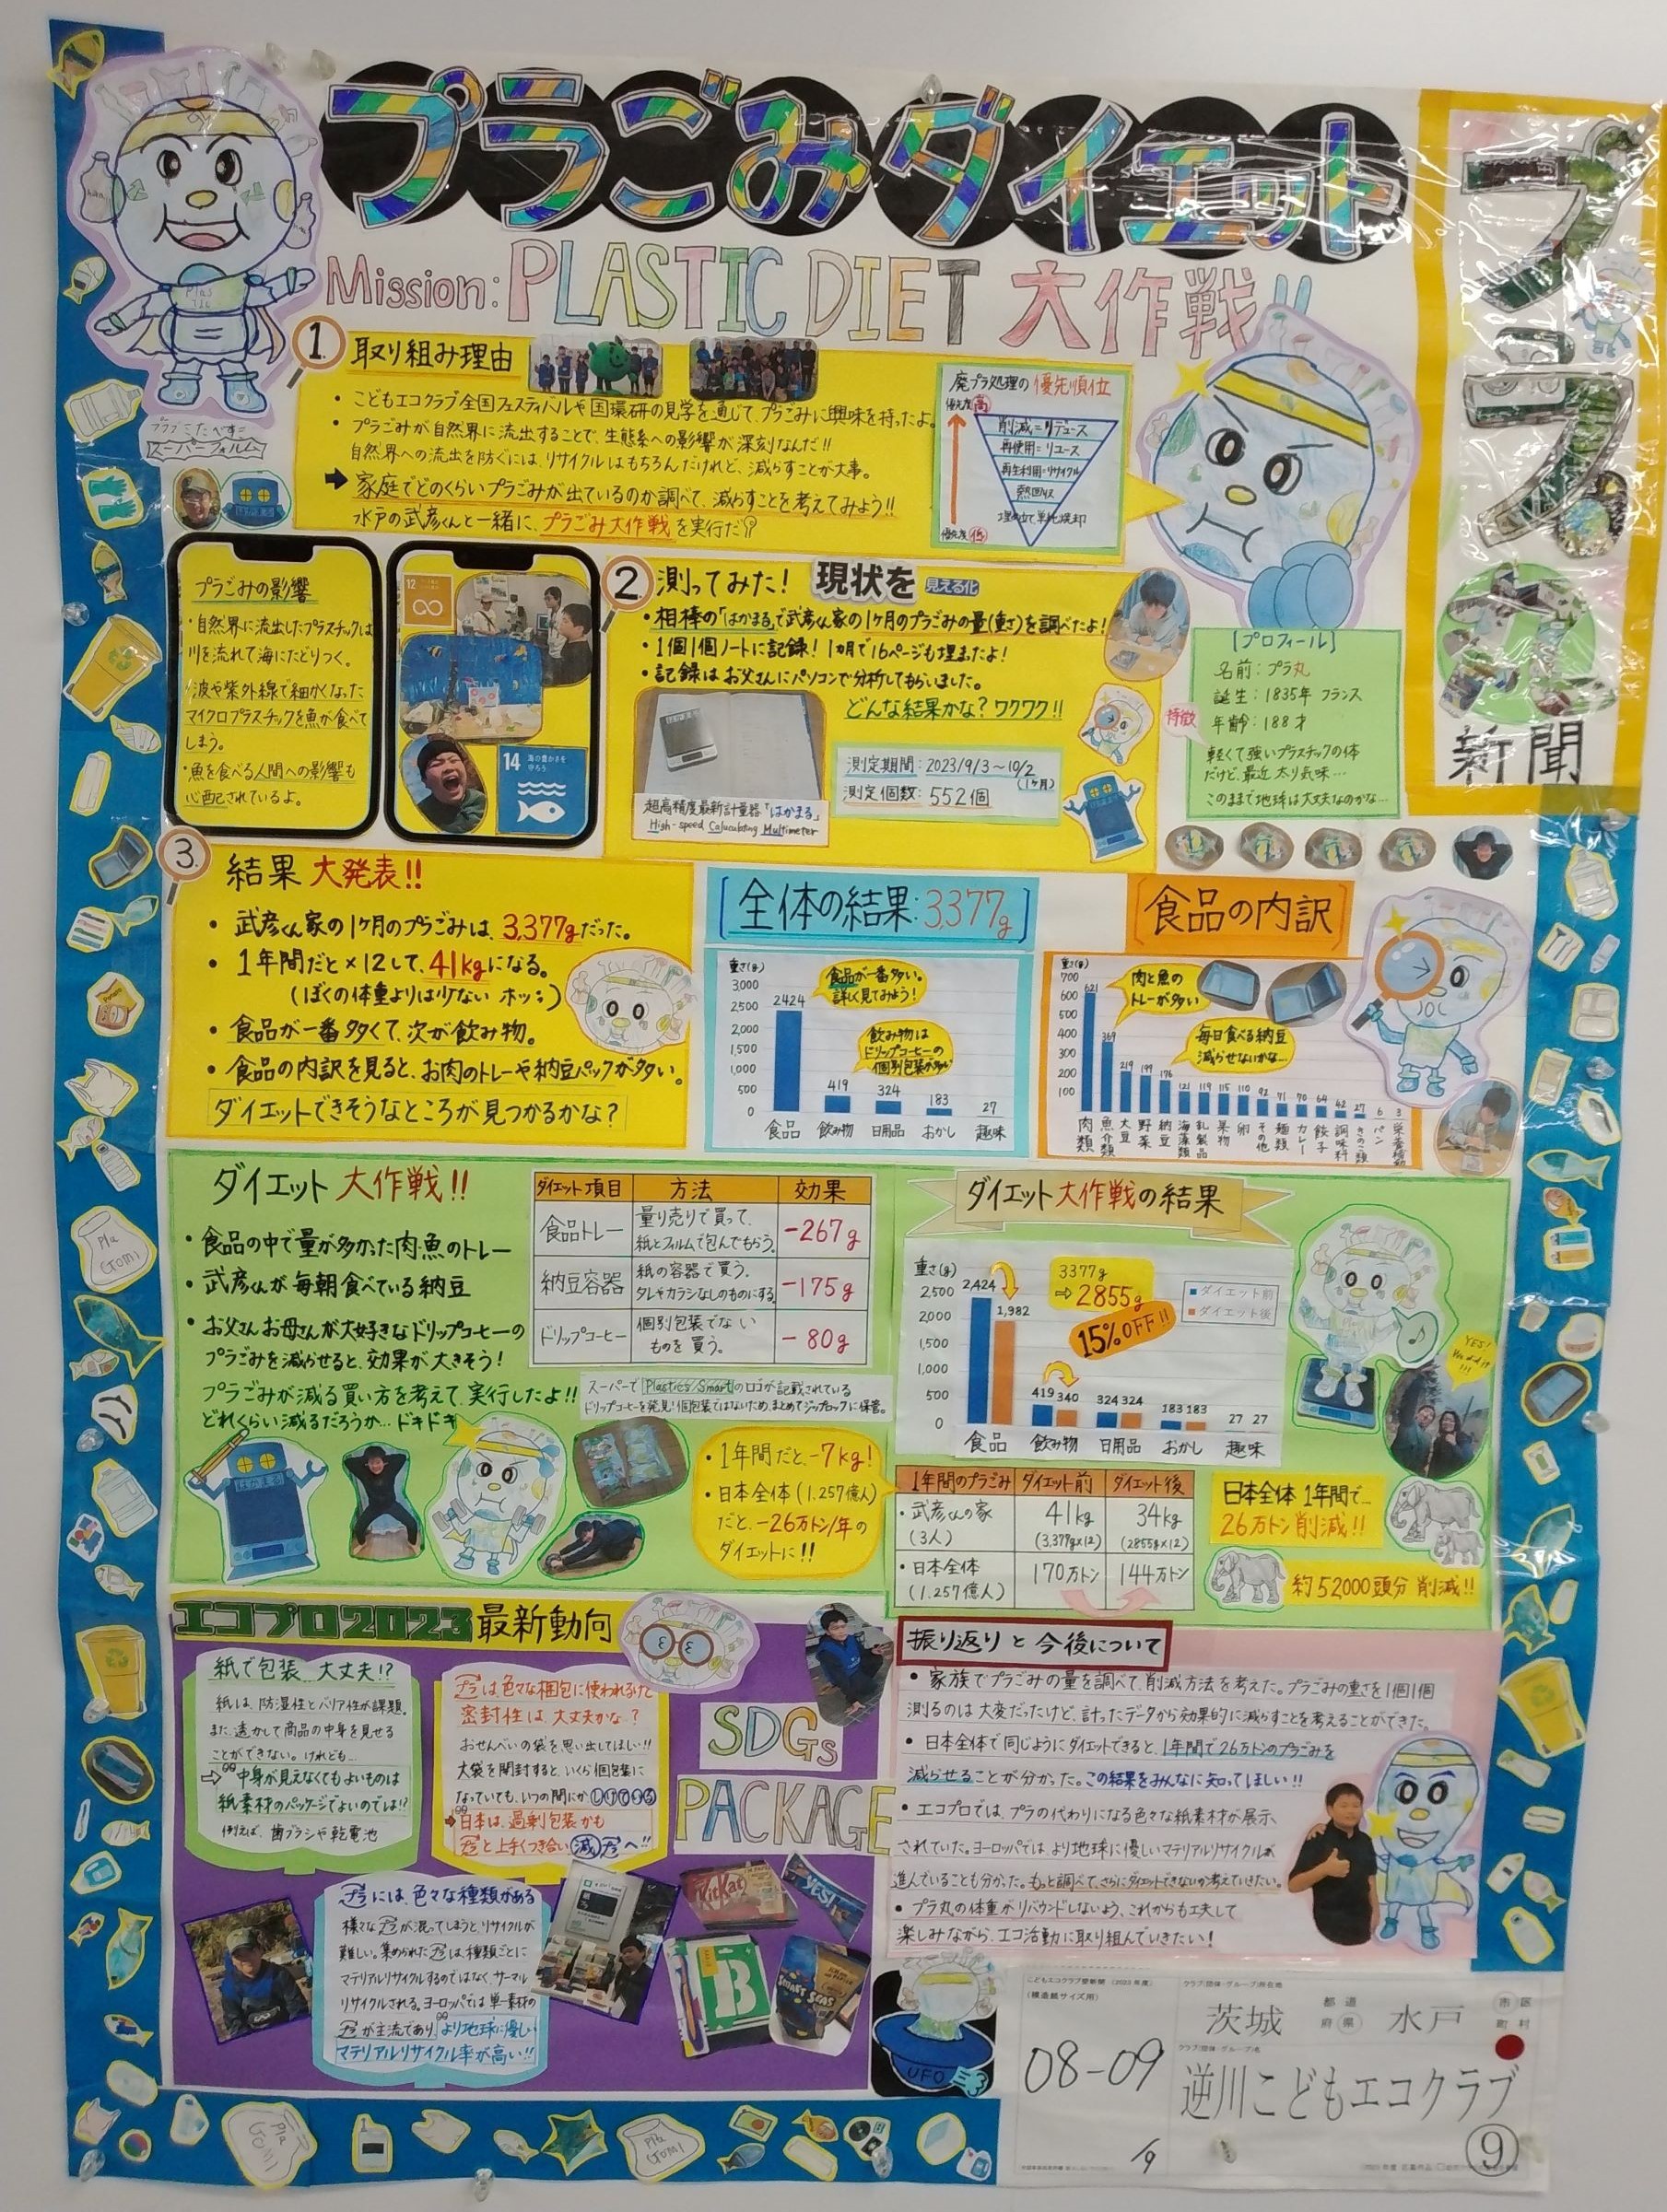 プラごみダイエット
Mission: PLASTIC DIET 大作戦!!
プラプラ
新聞
1. 取り組み理由
・こどもエコクラブ全国フェスティバルや国環研の見学を通じて、プラごみに興味を持ったよ。
・プラごみが自然界に流出することで、生態系への影響が深刻なんだ!!
自然界への流出を防ぐには、リサイクルはもちろんだけれど、減らすことが大事。
➡ 家庭でどのくらいプラごみが出ているのか調べて、減らすことを考えてみよう!!
水戸の武彦くんと一緒に、プラごみ大作戦を実行だ!?
廃プラ処理の優先順位
優先度 高
削減=リデュース
再使用=リユース
再生利用=リサイクル
熱回収
埋め立て 単純焼却
優先度 低
スーパーフォルム
プラごみの影響
・自然界に流出したプラスチックは
川を流れて海にたどりつく。
・波や紫外線で細かくなった
マイクロプラスチックを魚が食べて
しまう。
・魚を食べる人間への影響も
心配されているよ。
12
14 海の豊かさを
守ろう
2 測ってみた! 現状を 見える化
・相棒の「はかまる」で武彦くん家の1ヶ月のプラごみの量(重さ)を調べたよ!
・1個1個ノートに記録! 1ヵ月で16ページも埋まったよ!
・記録はお父さんにパソコンで分析してもらいました。
どんな結果かな? ワクワク!!
測定期間: 2023/9/3～10/2
(1ヶ月)
測定個数: 552個
超高精度最新計量器「はかまる」
High-speed Caluculating Multimeter
【プロフィール】
名前: プラ丸
誕生: 1835年 フランス
年齢: 188才
特徴
軽くて強いプラスチックの体
だけど、最近 太り気味…
このままで地球は大丈夫なのかな…
3. 結果 大発表!!
・武彦くん家の1ヶ月のプラごみは、3,377gだった。
・1年間だと×12して、41kgになる。
(ぼくの体重よりは少ない ホッ)
・食品が一番多くて、次が飲み物。
・食品の内訳を見ると、お肉のトレーや納豆パックが多い。
ダイエットできそうなところが見つかるかな?
[全体の結果: 3,377g]
重さ(g)
3,000
2,500
2,000
1,500
1,000
500
0
2424
419
324
183
27
食品 飲み物 日用品 おかし 趣味
食品が一番多い。
詳しく見てみよう!
飲み物は
ドリップコーヒーの
個別包装が多い
[食品の内訳]
重さ(g)
700
600
500
400
300
200
100
621
369
219
199
176
121 119 115 110 92 71 70 64 42 27 6 3
肉類 魚介類 大豆 野菜 納豆 海藻類 乳製品 果物 卵 その他 麺類 カレー 餃子 調味料 きのこ類 パン
肉と魚の
トレーが多い
毎日食べる納豆
減らせないかな…
ダイエット 大作戦!!
・食品の中で量が多かった肉・魚のトレー
・武彦くんが毎朝食べている納豆
・お父さんお母さんが大好きなドリップコーヒーの
プラごみを減らせると、効果が大きそう!
プラごみが減る買い方を考えて、実行したよ!!
どれくらい減るだろうか… ドキドキ
ダイエット項目 方法 効果
食品トレー 量り売りで買って、
紙とフィルムで包んでもらう。 -267g
納豆容器 紙の容器で買う。
タレやカラシなしのものにする。 -175g
ドリップコーヒー 個別包装でない
ものを買う。 -80g
スーパーで Plastics Smart のロゴが記載されている
ドリップコーヒーを発見! 個包装ではないため、まとめてジップロックに保管。
はかまる
・1年間だと、-7kg!
・日本全体(1.257億人)
だと、-26万トン/年の
ダイエットに!!
ダイエット大作戦の結果
重さ(g)
2,500
2,000
1,500
1,000
500
0
2,424
1,982
419 340
324 324
183 183
27 27
食品 飲み物 日用品 おかし 趣味
3377g
⇨ 2855g
15%OFF!!
ダイエット前
ダイエット後
YES!
We did it
!!!
1年間のプラごみ ダイエット前 ダイエット後
・武彦くんの家
(3人) 41kg
(3,377g×12) 34kg
(2855g×12)
・日本全体
(1.257億人) 170万トン 144万トン
日本全体 1年間で…
26万トン削減!!
約52000頭分 削減!!
エコプロ2023 最新動向
紙で包装、大丈夫!?
紙は、防湿性とバリア性が課題。
また、透かして商品の中身を見せる
ことができない。けれども…
⇨中身が見えなくてもよいものは
紙素材のパッケージでよいのでは!?
例えば、歯ブラシや乾電池
プラは、色々な梱包に使われるけど
密封性は、大丈夫かな?
おせんべいの袋を思い出してほしい!!
大袋を開封すると、いくら個包装に
なっていても、いつの間にかしけてる
➡日本は、過剰包装かも
プラと上手くつき合い減プラへ!!
プラには、色々な種類がある
様々なプラが混ってしまうとリサイクルが
難しい。集められたプラは、種類ごとに
マテリアルリサイクルするのではなく、サーマル
リサイクルされる。ヨーロッパでは単一素材の
プラが主流であり、より地球に優しい
マテリアルリサイクル率が高い!!
SDGs
PACKAGE
KitKat
YES!
B
SMART SEAS
UFO
振り返りと今後について
・家族でプラごみの量を調べて、削減方法を考えた。プラごみの重さを1個1個
測るのは大変だったけど、計ったデータから効果的に減らすことを考えることができた。
・日本全体で同じようにダイエットできると、1年間で26万トンのプラごみを
減らせることが分かった。この結果をみんなに知ってほしい!!
・エコプロでは、プラの代わりになる色々な紙素材が展示
されていた。ヨーロッパでは、より地球に優しいマテリアルリサイクルが
進んでいることも分かった。もっと調べて、さらにダイエットできないか考えていきたい。
・プラ丸の体重がリバウンドしないよう、これからも工夫して
楽しみながら、エコ活動に取り組んでいきたい!
Pla
Gomi
Pla
Gomi
Pla
Gomi
こどもエコクラブ壁新聞 (2023年度)
(模造紙サイズ用)
クラブ(団体・グループ)所在地
茨城 都道府県 水戸 市区町村
08-09
クラブ(団体・グループ)名
逆川こどもエコクラブ
1/9
⑨